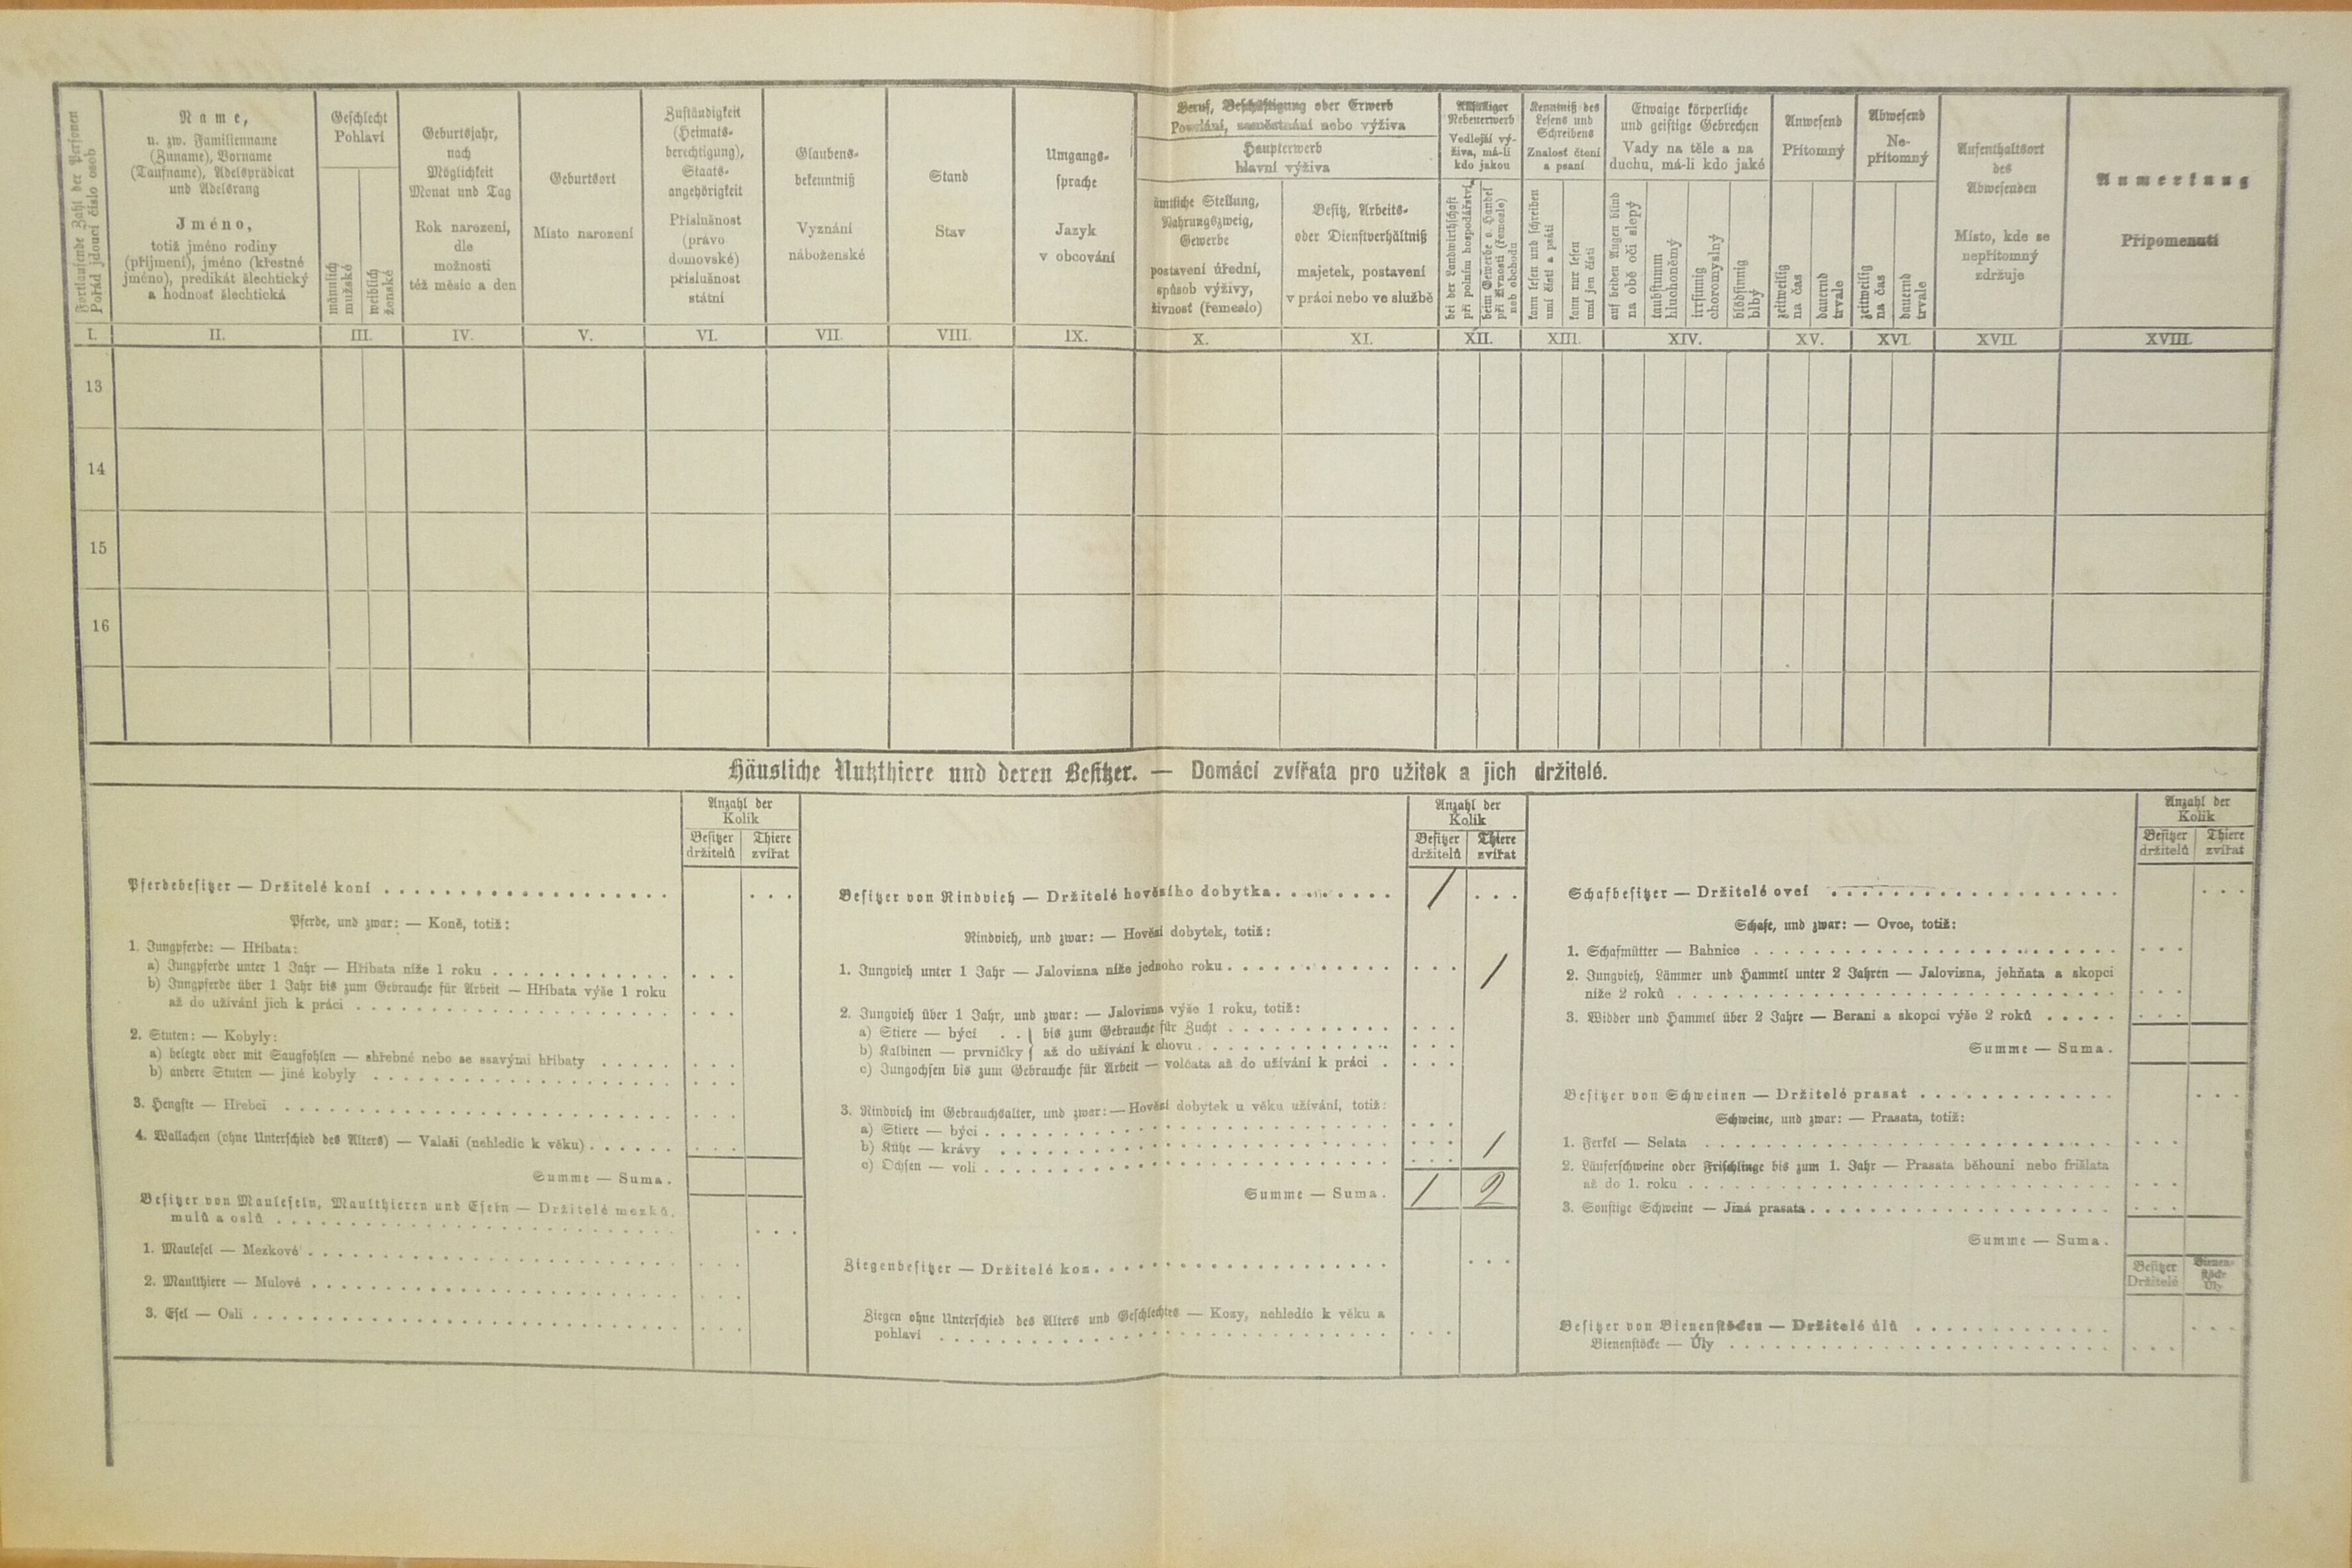 Fortlaufende Zahl der Personen
Pořád jdoucí číslo osob
Name,
u. zw. Familienname
(Zuname), Vorname
(Taufname), Adelsprädicat
und Adelsrang
Jméno,
totiž jméno rodiny
(příjmení), jméno (křestné
jméno), predikát šlechtický
a hodnosť šlechtická
Geschlecht
Pohlaví
männlich
mužské
weiblich
ženské
Geburtsjahr,
nach
Möglichkeit
Monat und Tag
Rok narození,
dle
možnosti
též měsíc a den
Geburtsort
Místo narození
Zuständigkeit
(Heimats-
berechtigung),
Staats-
angehörigkeit
Příslušnost
(právo
domovské)
příslušnost
státní
Glaubens-
bekenntniß
Vyznání
náboženské
Stand
Stav
Umgangs-
sprache
Jazyk
v obcování
Beruf, Beschäftigung oder Erwerb
Povolání, zaměstnání nebo výživa
Haupterwerb
hlavní výživa
ämtliche Stellung,
Nahrungszweig,
Gewerbe
postavení úřední,
spůsob výživy,
živnosť (řemeslo)
Besitz, Arbeits-
oder Dienstverhältniß
majetek, postavení
v práci nebo ve službě
Allfälliger
Nebenerwerb
Vedlejší vý-
živa, má-li
kdo jakou
bei der Landwirthschaft
při polním hospodářství
beim Gewerbe o. Handel
při živnosti (řemesle)
neb obchodu
Kenntniß des
Lesens und
Schreibens
Znalosť čtení
a psaní
kann lesen und schreiben
umí čísti a psáti
kann nur lesen
umí jen čísti
Etwaige körperliche
und geistige Gebrechen
Vady na těle a na
duchu, má-li kdo jaké
auf beiden Augen blind
na obě oči slepý
taubstumm
hluchoněmý
irrsinnig
choromyslný
blödsinnig
blbý
Anwesend
Přítomný
zeitweilig
na čas
dauernd
trvale
Abwesend
Ne-
přítomný
zeitweilig
na čas
dauernd
trvale
Aufenthaltsort
des
Abwesenden
Místo, kde se
nepřítomný
zdržuje
Anmerkung
Připomenutí
I. II. III. IV. V. VI. VII. VIII. IX. X. XI. XII. XIII. XIV. XV. XVI. XVII. XVIII.
13
14
15
16
Häusliche Nutzthiere und deren Besitzer. — Domácí zvířata pro užitek a jich držitelé.
Anzahl der
Kolik
Besitzer Thiere
držitelů zvířat
Pferdebesitzer — Držitelé koní
Pferde, und zwar: — Koně, totiž:
1. Jungpferde: — Hříbata:
a) Jungpferde unter 1 Jahr — Hříbata níže 1 roku
b) Jungpferde über 1 Jahr bis zum Gebrauche für Arbeit — Hříbata výše 1 roku
až do užívání jich k práci
2. Stuten: — Kobyly:
a) belegte oder mit Saugfohlen — shřebné nebo se ssavými hříbaty
b) andere Stuten — jiné kobyly
3. Hengste — Hřebci
4. Wallachen (ohne Unterschied des Alters) — Valaši (nehledíc k věku)
Summe — Suma.
Besitzer von Mauleseln, Maulthieren und Eseln — Držitelé mezků,
mulů a oslů
1. Maulesel — Mezkové
2. Maulthiere — Mulové
3. Esel — Osli
Anzahl der
Kolik
Besitzer Thiere
držitelů zvířat
Besitzer von Rindvieh — Držitelé hovězího dobytka 1
Rindvieh, und zwar: — Hovězí dobytek, totiž:
1. Jungvieh unter 1 Jahr — Jalovizna níže jednoho roku 1
2. Jungvieh über 1 Jahr, und zwar: — Jalovizna výše 1 roku, totiž:
a) Stiere — býci . . } bis zum Gebrauche für Zucht
b) Kalbinen — prvničky } až do užívání k chovu
c) Jungochsen bis zum Gebrauche für Arbeit — volčata až do užívání k práci
3. Rindvieh im Gebrauchsalter, und zwar: — Hovězí dobytek u věku užívání, totiž:
a) Stiere — býci
b) Kühe — krávy 1
c) Ochsen — voli
Summe — Suma. 1 2
Ziegenbesitzer — Držitelé koz
Ziegen ohne Unterschied des Alters und Geschlechtes — Kozy, nehledíc k věku a
pohlaví
Anzahl der
Kolik
Besitzer Thiere
držitelů zvířat
Schafbesitzer — Držitelé ovcí
Schafe, und zwar: — Ovce, totiž:
1. Schafmütter — Bahnice
2. Jungvieh, Lämmer und Hammel unter 2 Jahren — Jalovizna, jehňata a skopci
níže 2 roků
3. Widder und Hammel über 2 Jahre — Berani a skopci výše 2 roků
Summe — Suma.
Besitzer von Schweinen — Držitelé prasat
Schweine, und zwar: — Prasata, totiž:
1. Ferkel — Selata
2. Läuferschweine oder Frischlinge bis zum 1. Jahr — Prasata běhouni nebo frišlata
až do 1. roku
3. Sonstige Schweine — Jiná prasata
Summe — Suma.
Besitzer Bienen-
Držitelé stöcke
Úly
Besitzer von Bienenstöcken — Držitelé úlů
Bienenstöcke — Úly